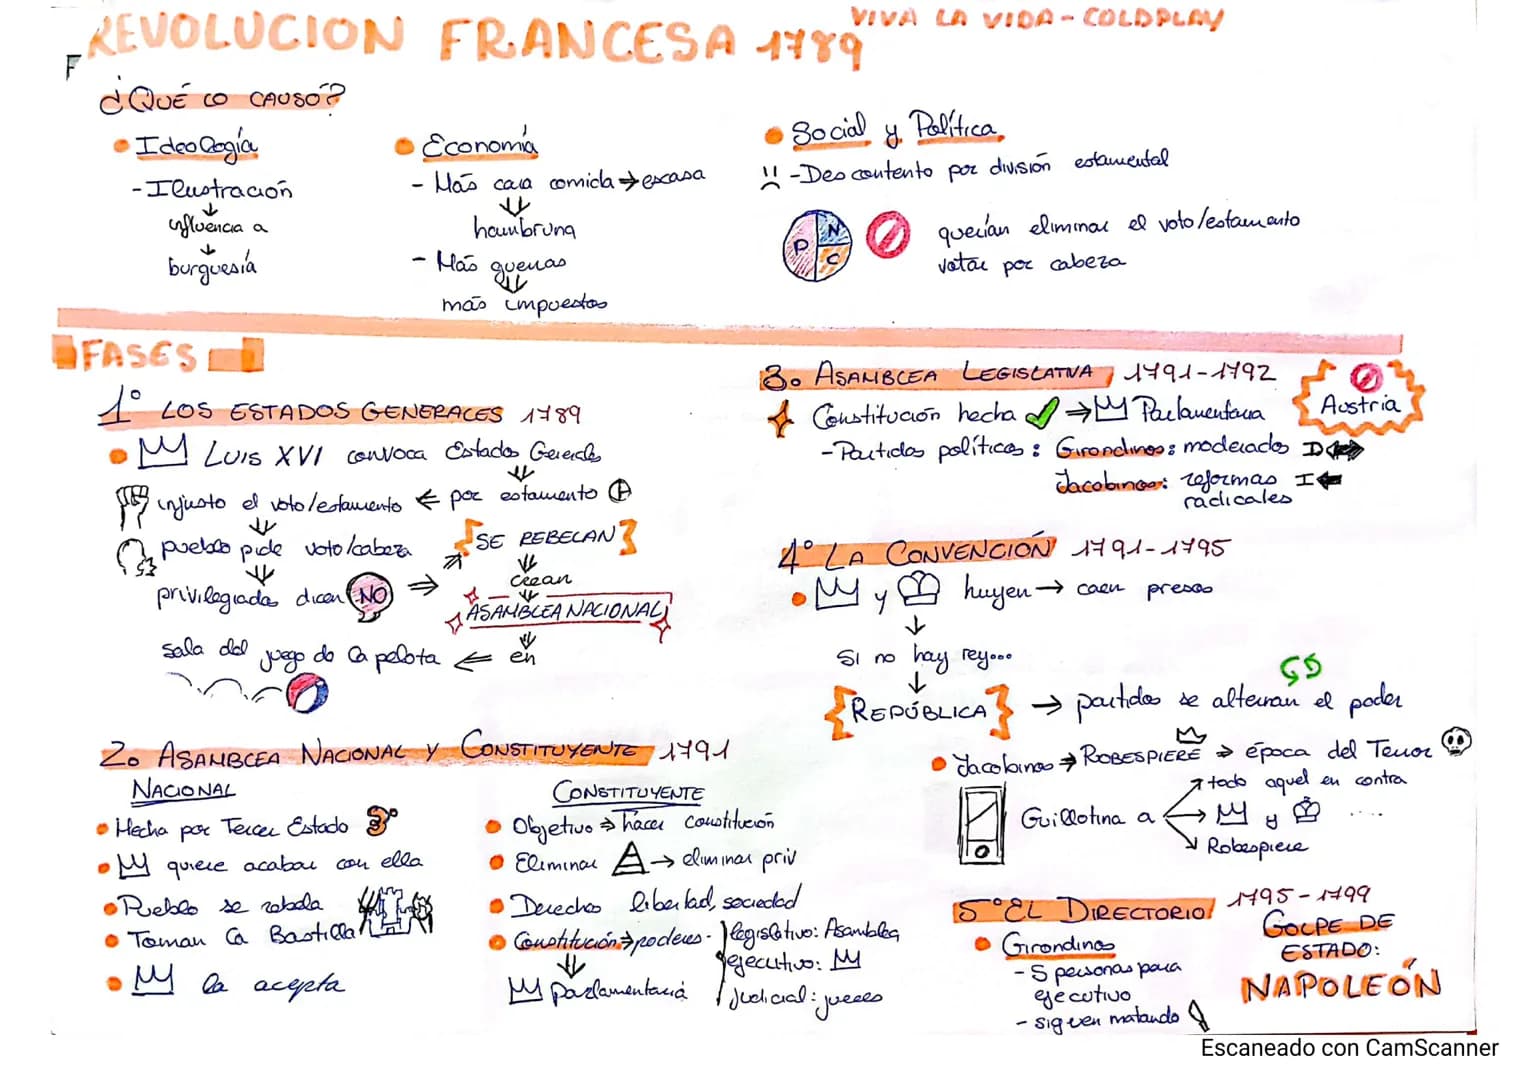 REVOLUCION FRANCESA 1789
VIVA LA VIDA - COLDPLAY
F
¿QUÉ LO CAUSÓ?
Ideología
- Ilustración
influencia a
burguesía
Economía
- Más cara comida → escasa
hambruna
- Más guerras
más impuestos
Social y Política
- Descontento por división estamental
P N C
querían eliminar el voto/estamento
votar por cabeza
FASES
1º LOS ESTADOS GENERALES 1789
LUIS XVI convoca Estados Generales
injusto el voto/estamento ⇐ por estamento
pueblo pide voto/cabeza
privilegiados dicen NO ⇒
SE REBELAN
crean
ASAMBLEA NACIONAL
en
sala del juego de la pelota ⇐
2. ASAMBLEA NACIONAL Y CONSTITUYENTE 1791
NACIONAL
Hecha por Tercer Estado 3º
quiere acabar con ella
Pueblo se rebela
Toman la Bastilla
la acepta
CONSTITUYENTE
Objetivo ⇒ hacer constitución
Eliminar → eliminar priv
Derechos libertad, sociedad
Constitución ⇒ poderes - legislativo: Asamblea
ejecutivo:
judicial: jueces
parlamentaria
3. ASAMBLEA LEGISLATIVA 1791-1792
Austria
Constitución hecha ⇒ Parlamentaria
- Partidos políticos: Girondinos: moderados D
Jacobinos: reformas I
radicales
4º LA CONVENCIÓN 1791-1795
y huyen → caen presos
Si no hay rey...
REPÚBLICA → partidos se alternan el poder
Jacobinos → ROBESPIERE ⇒ época del Terror
Guillotina a
todo aquel en contra
y ....
Robespiere
5º EL DIRECTORIO 1795-1799
Girondinos
- 5 personas para
ejecutivo
- siguen matando
GOLPE DE
ESTADO:
NAPOLEÓN
Escaneado con CamScanner